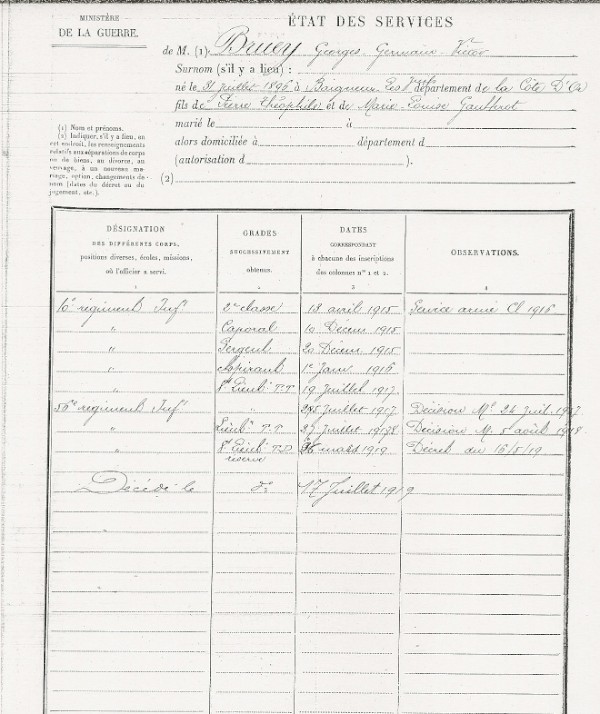 MINISTÈRE
DE LA GUERRE.
ÉTAT DES SERVICES
de M. (1): Bruey Georges Germain Victor
Surnom (s'il y a lieu) :
né le 31 Juillet 1896 à Baigneux les département de la Côte D'Or
fils de Pierre Théophile et de Marie Louise Gautherot
marié le à
alors domiciliée à département d
(autorisation d ).
(2)
(1) Nom et prénoms.
(2) Indiquer, s'il y a lieu, en
cet endroit, les renseignements
relatifs aux séparations de corps
ou de biens, au divorce, au
veuvage, à un nouveau ma-
riage, option, changements de
nom (dates du décret ou du
jugement, etc.).
DÉSIGNATION
DES DIFFÉRENTS CORPS,
positions diverses, écoles, missions,
où l'officier a servi.
1
GRADES
SUCCESSIVEMENT
obtenus.
2
DATES
CORRESPONDANT
à chacune des inscriptions
des colonnes nos 1 et 2.
3
OBSERVATIONS.
4
10e régiment Inf. 2e classe 13 avril 1915 Service armé Cl 1916
" Caporal 10 Décem 1915
" Sergent 20 Décem 1915
" Aspirant 1er Janv. 1916
" S Lieut T.T. 19 Juillet 1917
56e régiment Inf. Juillet 1917 Décision Mle 24 Juil. 1917
" Lieutt T.T. 27 Juillet Décision M. 5 avril 1918
S Lieut T.D. mars 1919 Décret du 16/5/19
réserve
Décédé le dº 17 Juillet 1919